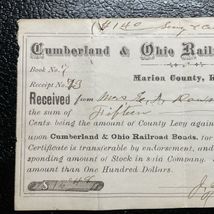 $14.40
Cumberland & Ohio Rail
Book No. 7
Marion County, K
Receipt No. 73
Received from Mrs
the sum of Fifteen
Cents, being the amount of County Levy again
upon Cumberland & Ohio Railroad Bonds, for
Certificate is transferable by endorsement, and
sponding amount of Stock in said Company.
amount than One Hundred Dollars.